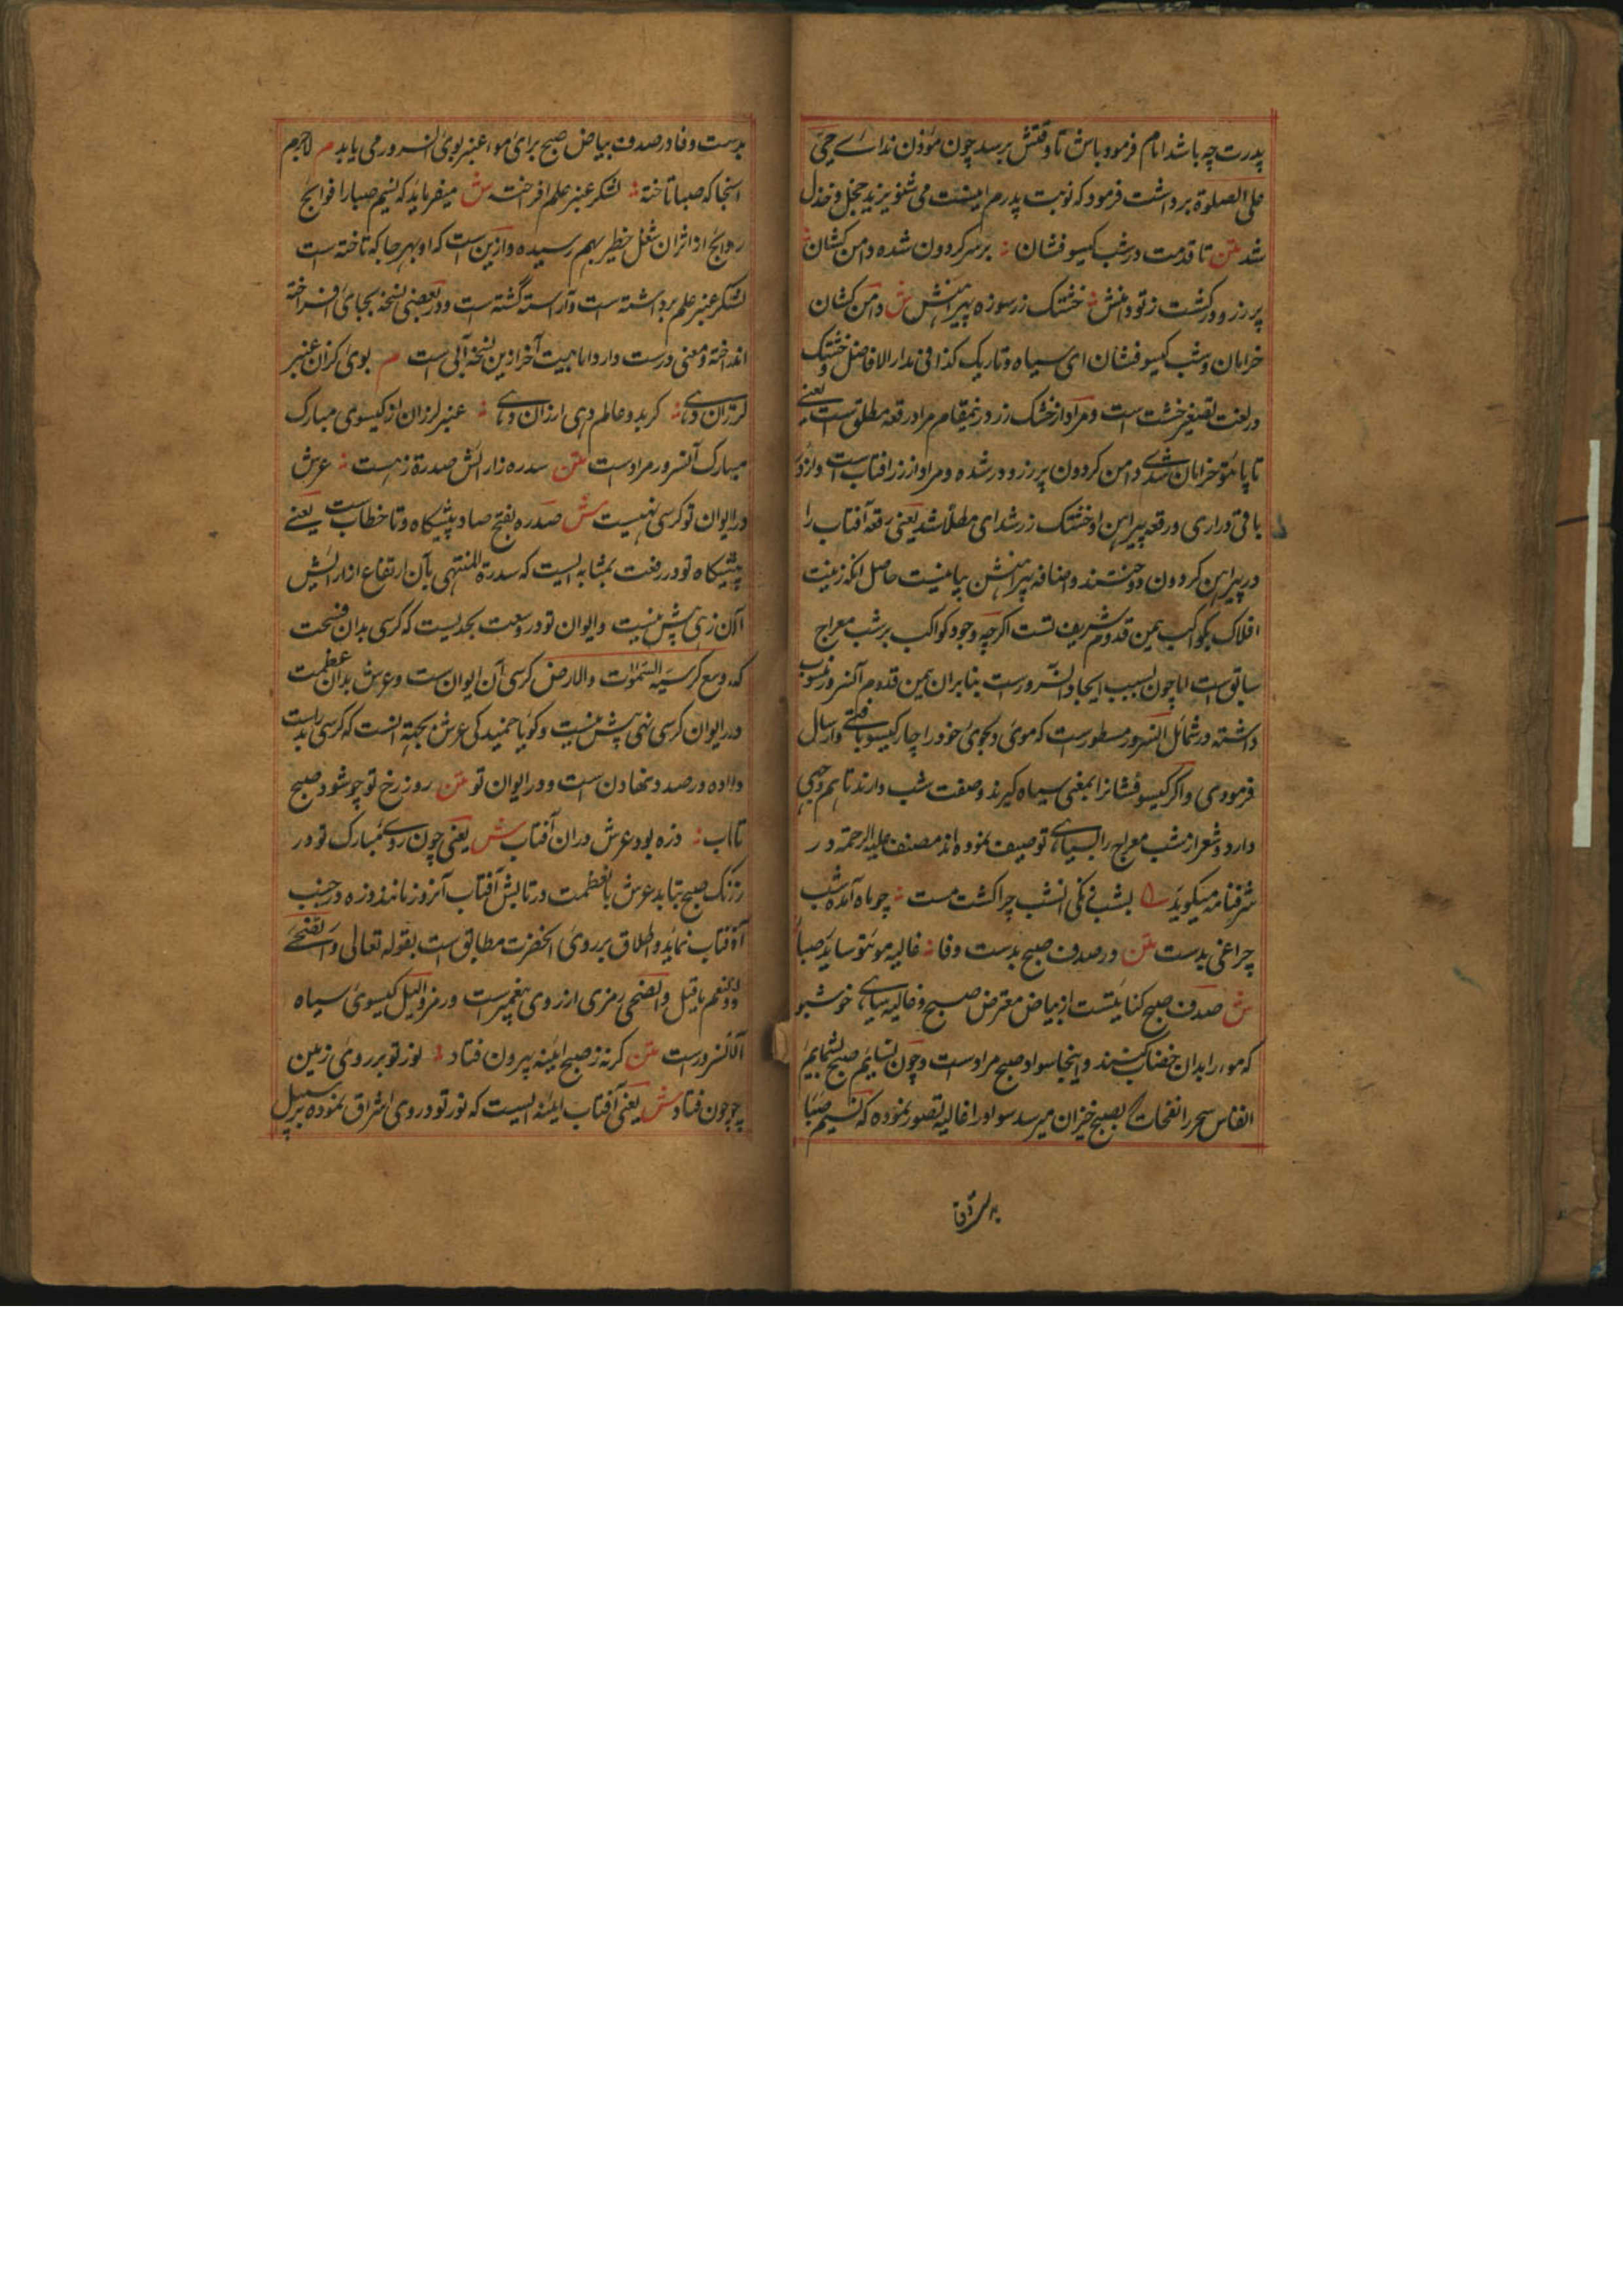 پدرت چه باشد امام فرمود باش تا وقتش برسد چون مؤذن ندائے حی
علی الصلوة برداشت فرمود که نوبت پدرم اینست می شنو یزید خجل و خذل
شد متن تا قدمت در شب گیسو فشان بر سر گردون شده دامن کشان
پر زر و در گشت ز تو دامنش خشتک زر سوزه پیراهنش ش دامن کشان
خرامان و شب گیسو فشان ای سیاه و تاریک کذا فی مدار الافاضل و خشتک
در لغت تصغیر خشت است و مراد از خشتک زر درینمقام مراد رقعه مطلق است یعنے
تا پا تو خرامان شدی دامن گردون پر زر و در شده و مراد از زر افتاب است و از در
باقی دراری و رقعه پیراهن او خشتک زر شد ای مطلا شد یعنی رقعه آفتاب را
در پیراهن گردون دوختند و اضافه پیراهنش بیانیست حاصل آنکه زینت
افلاک بکواکب بیمن قدوم شریف تست اگرچه وجود کواکب بر شب معراج
سابق است اما چون بسبب ایجاد آنسرور است بنابران بیمن قدوم آنسرور منسوب
داشته در شمائل آنسرور مسطور است که موئ دلجوئ خود را چار گیسو بافتے و ارسال
فرمودی و اگر گیسو فشانرا بمعنی سیاه گیرند و صفت شب دارند تا هم وجهی
دارد و شعرا از شب معراج را بسیاهے توصیف نموده اند مصنف علیه الرحمة در
شرفنامه میگوید بشب فکی انشب چرا گشت مست چو ماه آمده شب
چراغی بدست متن در صدف صبح بدست وفا غالیه مو تو ساید صبا
ش صدف صبح کنایتست از بیاض معترض صبح و غالیه سیاهے خوشبو
که موء را بدان خضاب کنند و اینجا سواد صبح مرادست و چون نسایم صبح بشمایم
انفاس سحر را نفحات بصبح خیزان میرسد سواد را غالیه تصور نموده که نسیم صبا
بدست وفا
بدست وفا در صدف بیاض صبح برای موء عنبر بوئ آنسرور می یابد م لاجرم
آنجا که صبا تاخته لشکر عنبر علم افراخته ش میفرماید که نسیم صبا را فوایح
روایح از اثر ان شغل خطیر بهم رسیده و ازین است که او بهر جا که تاخته است
لشکر عنبر علم برداشته است و آراسته گشته است و در بعضی نسخه بجائ افراخته
انداخته و معنی درست دارد اما بیت آخر ازین نسخه آبی است م بوئ کزان عنبر
لرزان دهے گر بدو عالم دهی ارزان دهے عنبر لرزان از گیسوی مبارک
مبارک آنسرور مرادست متن سدره ز آرایش صدرة زهیست عرش
در ایوان تو کرسی نهیست ش صدره بفتح صاد پیشگاه و تا خطاب ست یعنے
پیشگاه تو در رفعت بمثابه ایست که سدرة المنتهی بآن ارتفاع از آرایش
آن زهی بیش نیست و ایوان تو در وسعت بحدیست که کرسی بدان فسحت
که وسع کرسیه السموات والارض کرسی آن ایوان ست و عرش بدان عظمت
در ایوان کرسی نهی بیش نیست و گویا خمیدگی عرش بجهة آنست که کرسی بدست
داده در صدد نهادن است و در ایوان تو متن روزن رخ تو چو شود صبح
تاب ذره بود عرش دران آفتاب ش یعنی چون روے مبارک تو در
رنگ صبح بتابد عرش با عظمت در تابش آفتاب آنروز مانند ذره در جنب
آفتاب نماید و اطلاق بر روئ آنحضرت مطابق است بقوله تعالی والضحے
و لنعم ما قیل والضحی رمزی از روی پیغمبرست و رمز واللیل گیسوئ سیاه
آنسرورست متن گر نه ز صبح آئینه بیرون فتاد نور تو بر روئ زمین
چون فتاد ش یعنی آفتاب آئینه ایست که نور تو در وی اشراق نموده بر سبیل